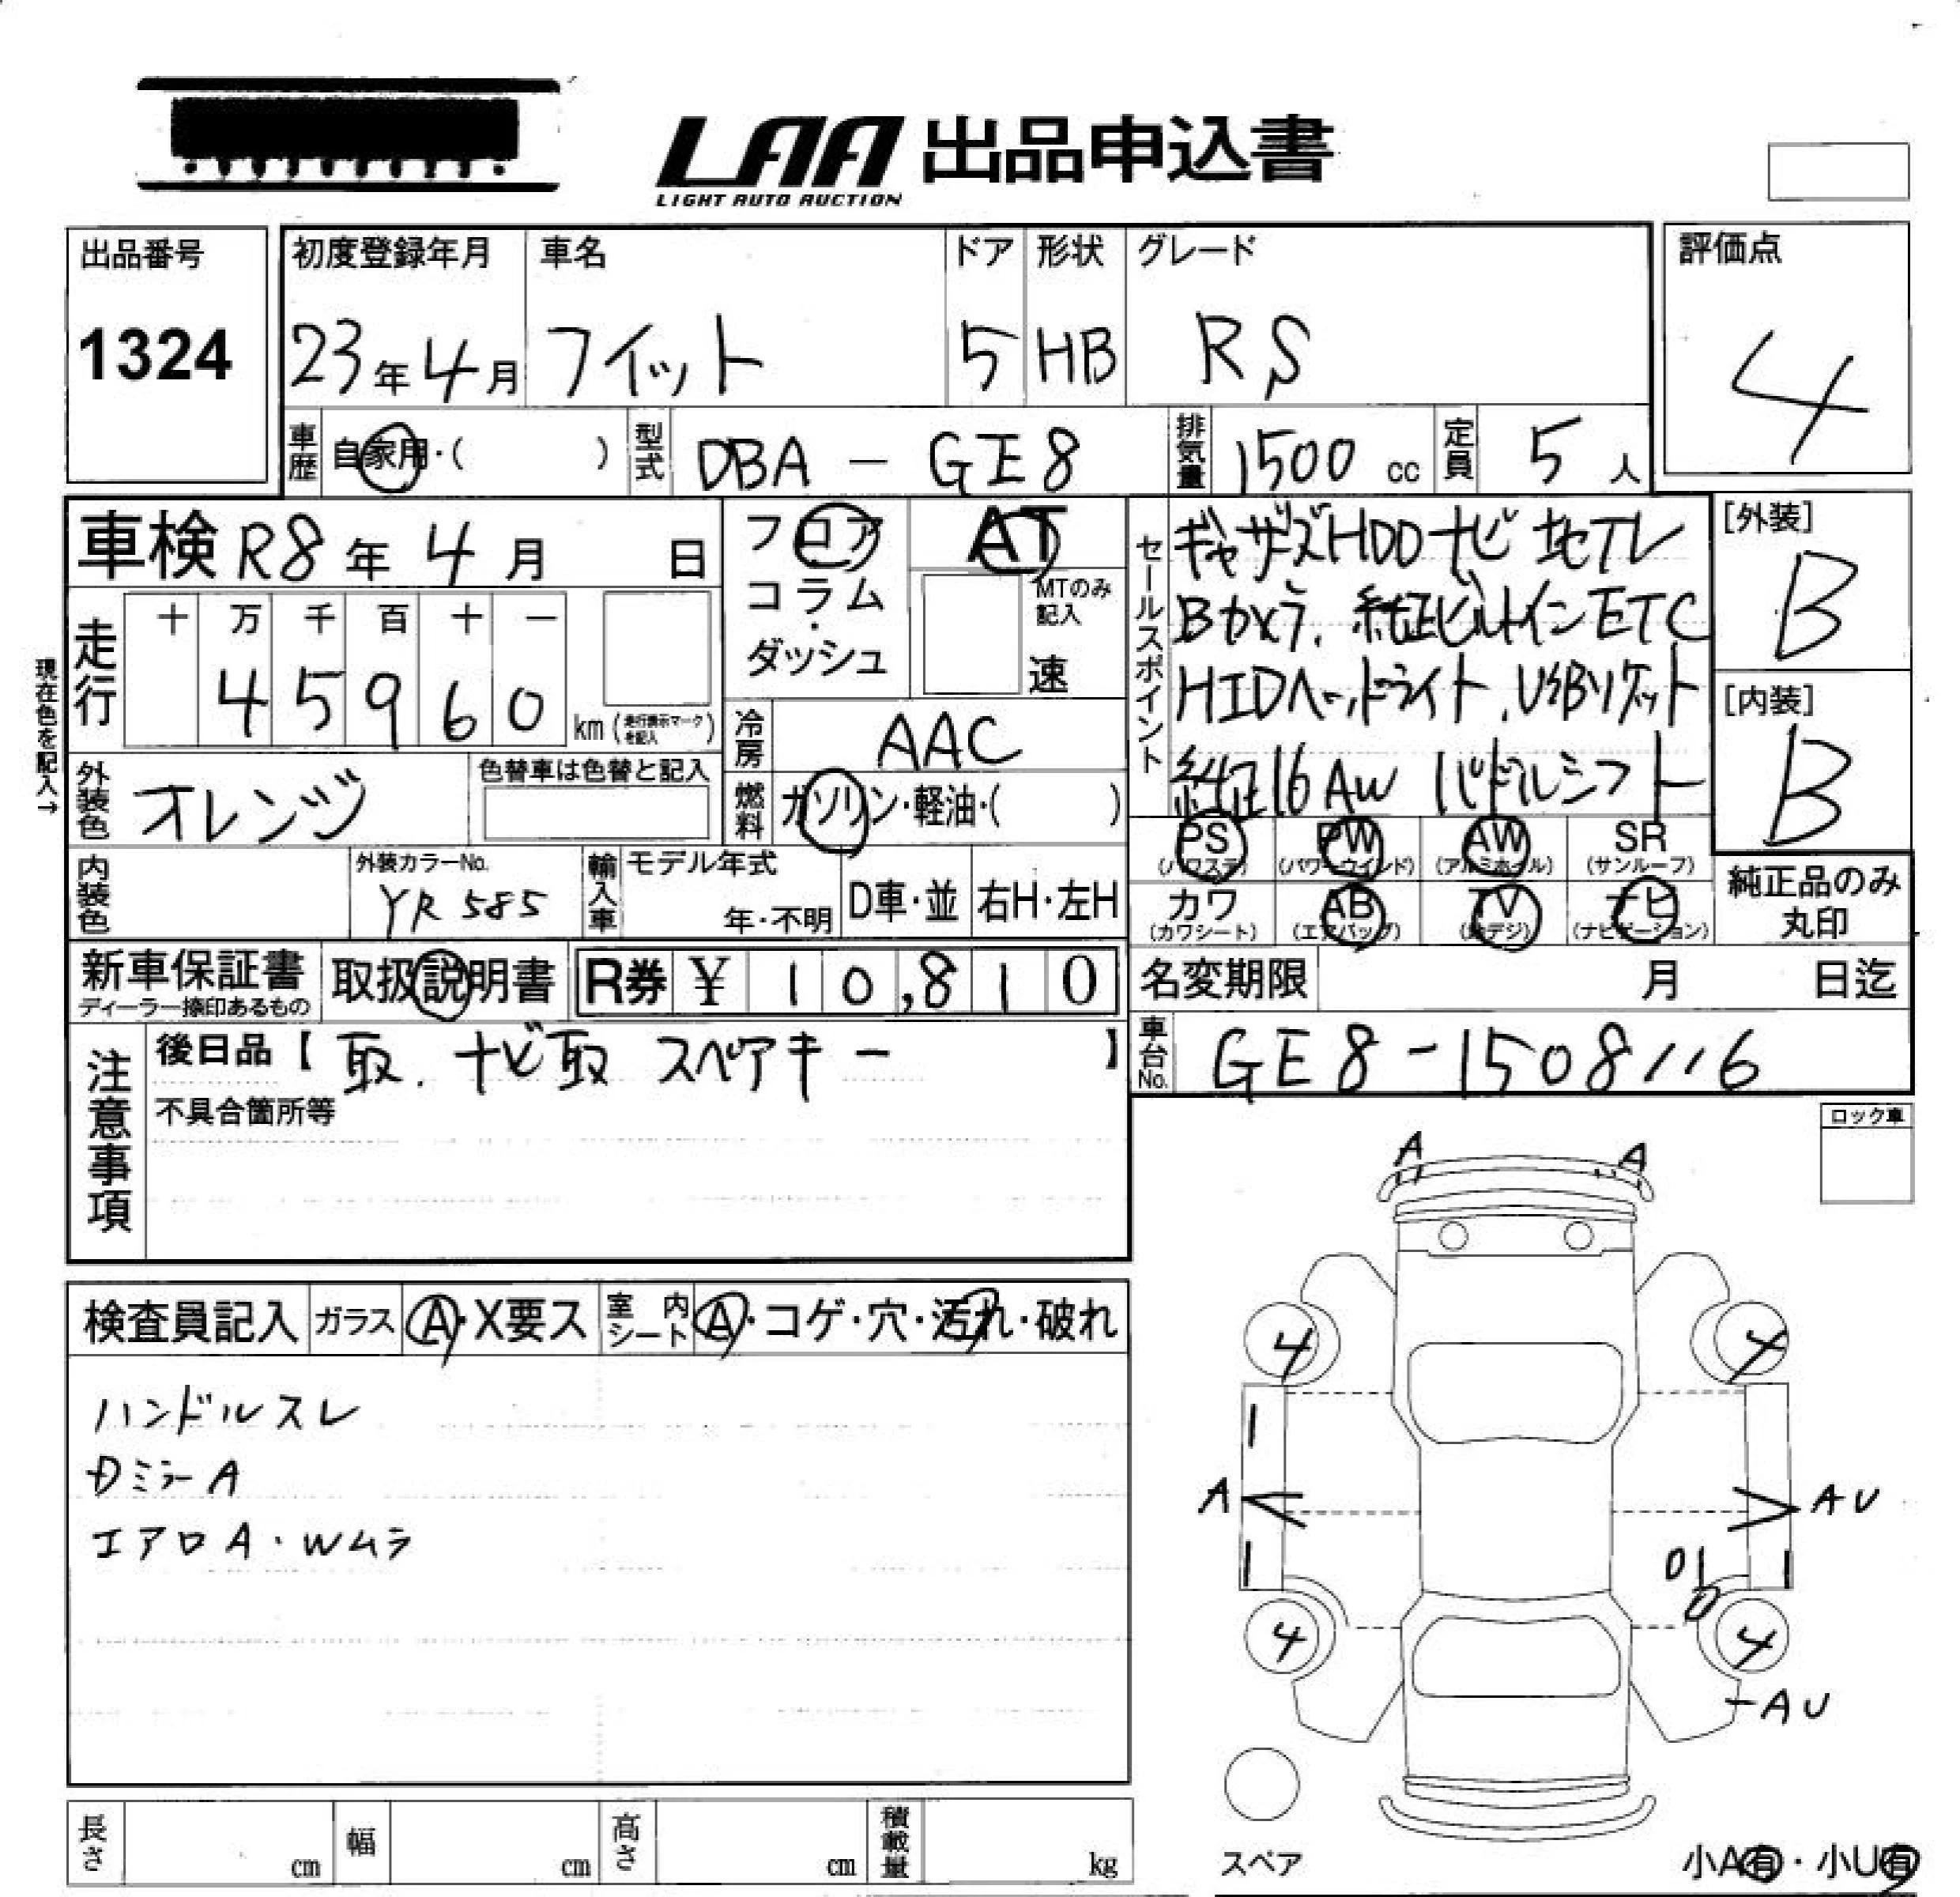 LAA 出品申込書
LIGHT AUTO AUCTION
出品番号
1324
初度登録年月
23年4月
車名
フィット
ドア
5
形状
HB
グレード
RS
評価点
4
車歴
自家用・( )
型式
DBA - GE8
排気量
1500 cc
定員
5人
車検 R8年 4月 日
フロア
コラム
・
ダッシュ
AT
MTのみ
記入
速
セールスポイント
ギャザズHDDナビ 地テレ
Bカメラ、純正ビルトインETC
HIDヘッドライト、USBソケット
純正16AW パドルシフト
[外装]
B
[内装]
B
現在色を記入→
走行
十 万 千 百 十 一
4 5 9 6 0
km (走行表示マークを記入)
冷房
AAC
外装色
オレンジ
色替車は色替と記入
燃料
ガソリン・軽油・( )
内装色
外装カラーNo.
YR585
輸入車
モデル年式
年・不明
D車・並
右H・左H
PS
(パワステ)
PW
(パワーウインド)
AW
(アルミホイル)
SR
(サンルーフ)
カワ
(カワシート)
AB
(エアバッグ)
TV
(地デジ)
ナビ
(ナビゲーション)
純正品のみ
丸印
新車保証書
ディーラー捺印あるもの
取扱説明書
R券 ¥ 10,810
名変期限 月 日迄
車台No.
GE8-1508116
注意事項
後日品【 取、ナビ取 スペアキー 】
不具合箇所等
ロック車
検査員記入
ガラス
A・X要ス
室内シート
A・コゲ・穴・汚れ・破れ
ハンドルスレ
Dミラ-A
エアロA・Wムラ
A A
4 4
A AU
4 4
AU
スペア
小A有・小U有
長さ cm
幅 cm
高さ cm
積載量 kg